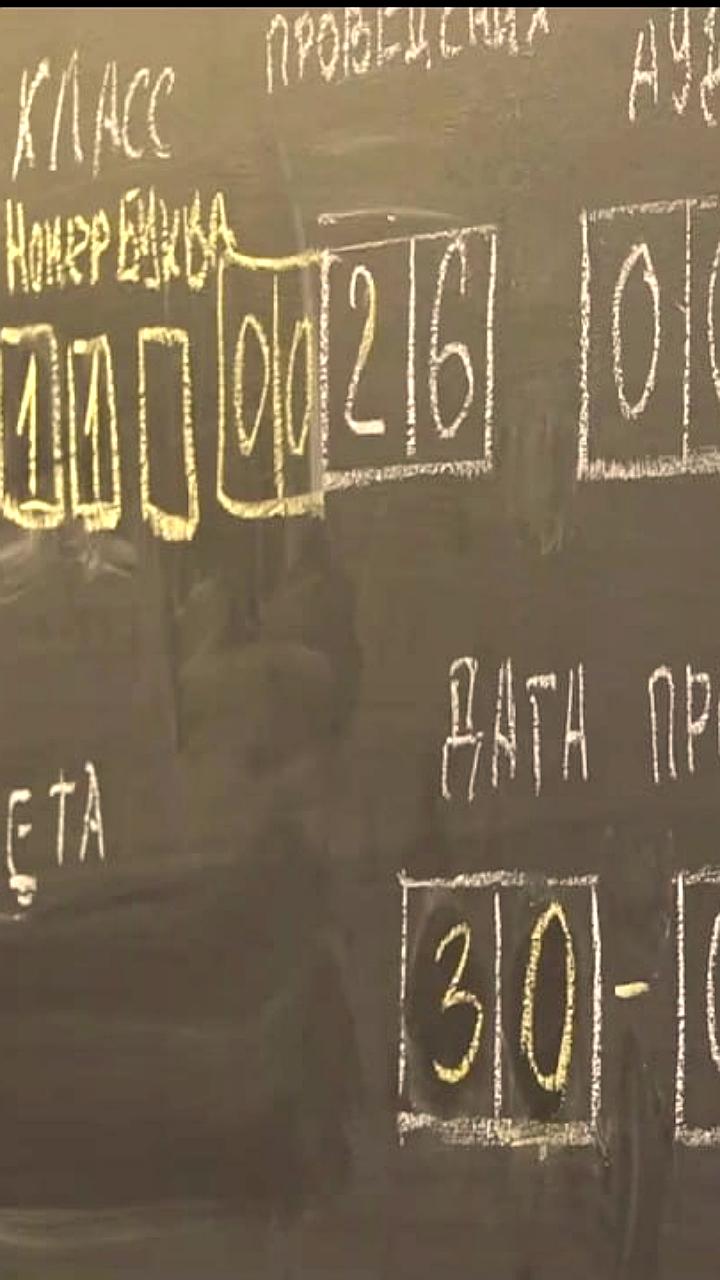 КЛАСС ПРОВЕДЕНИЯ АУД
НОМЕР БУКВА
11 00 26 00
ДАТА ПРО
ЕТА
30 - 0